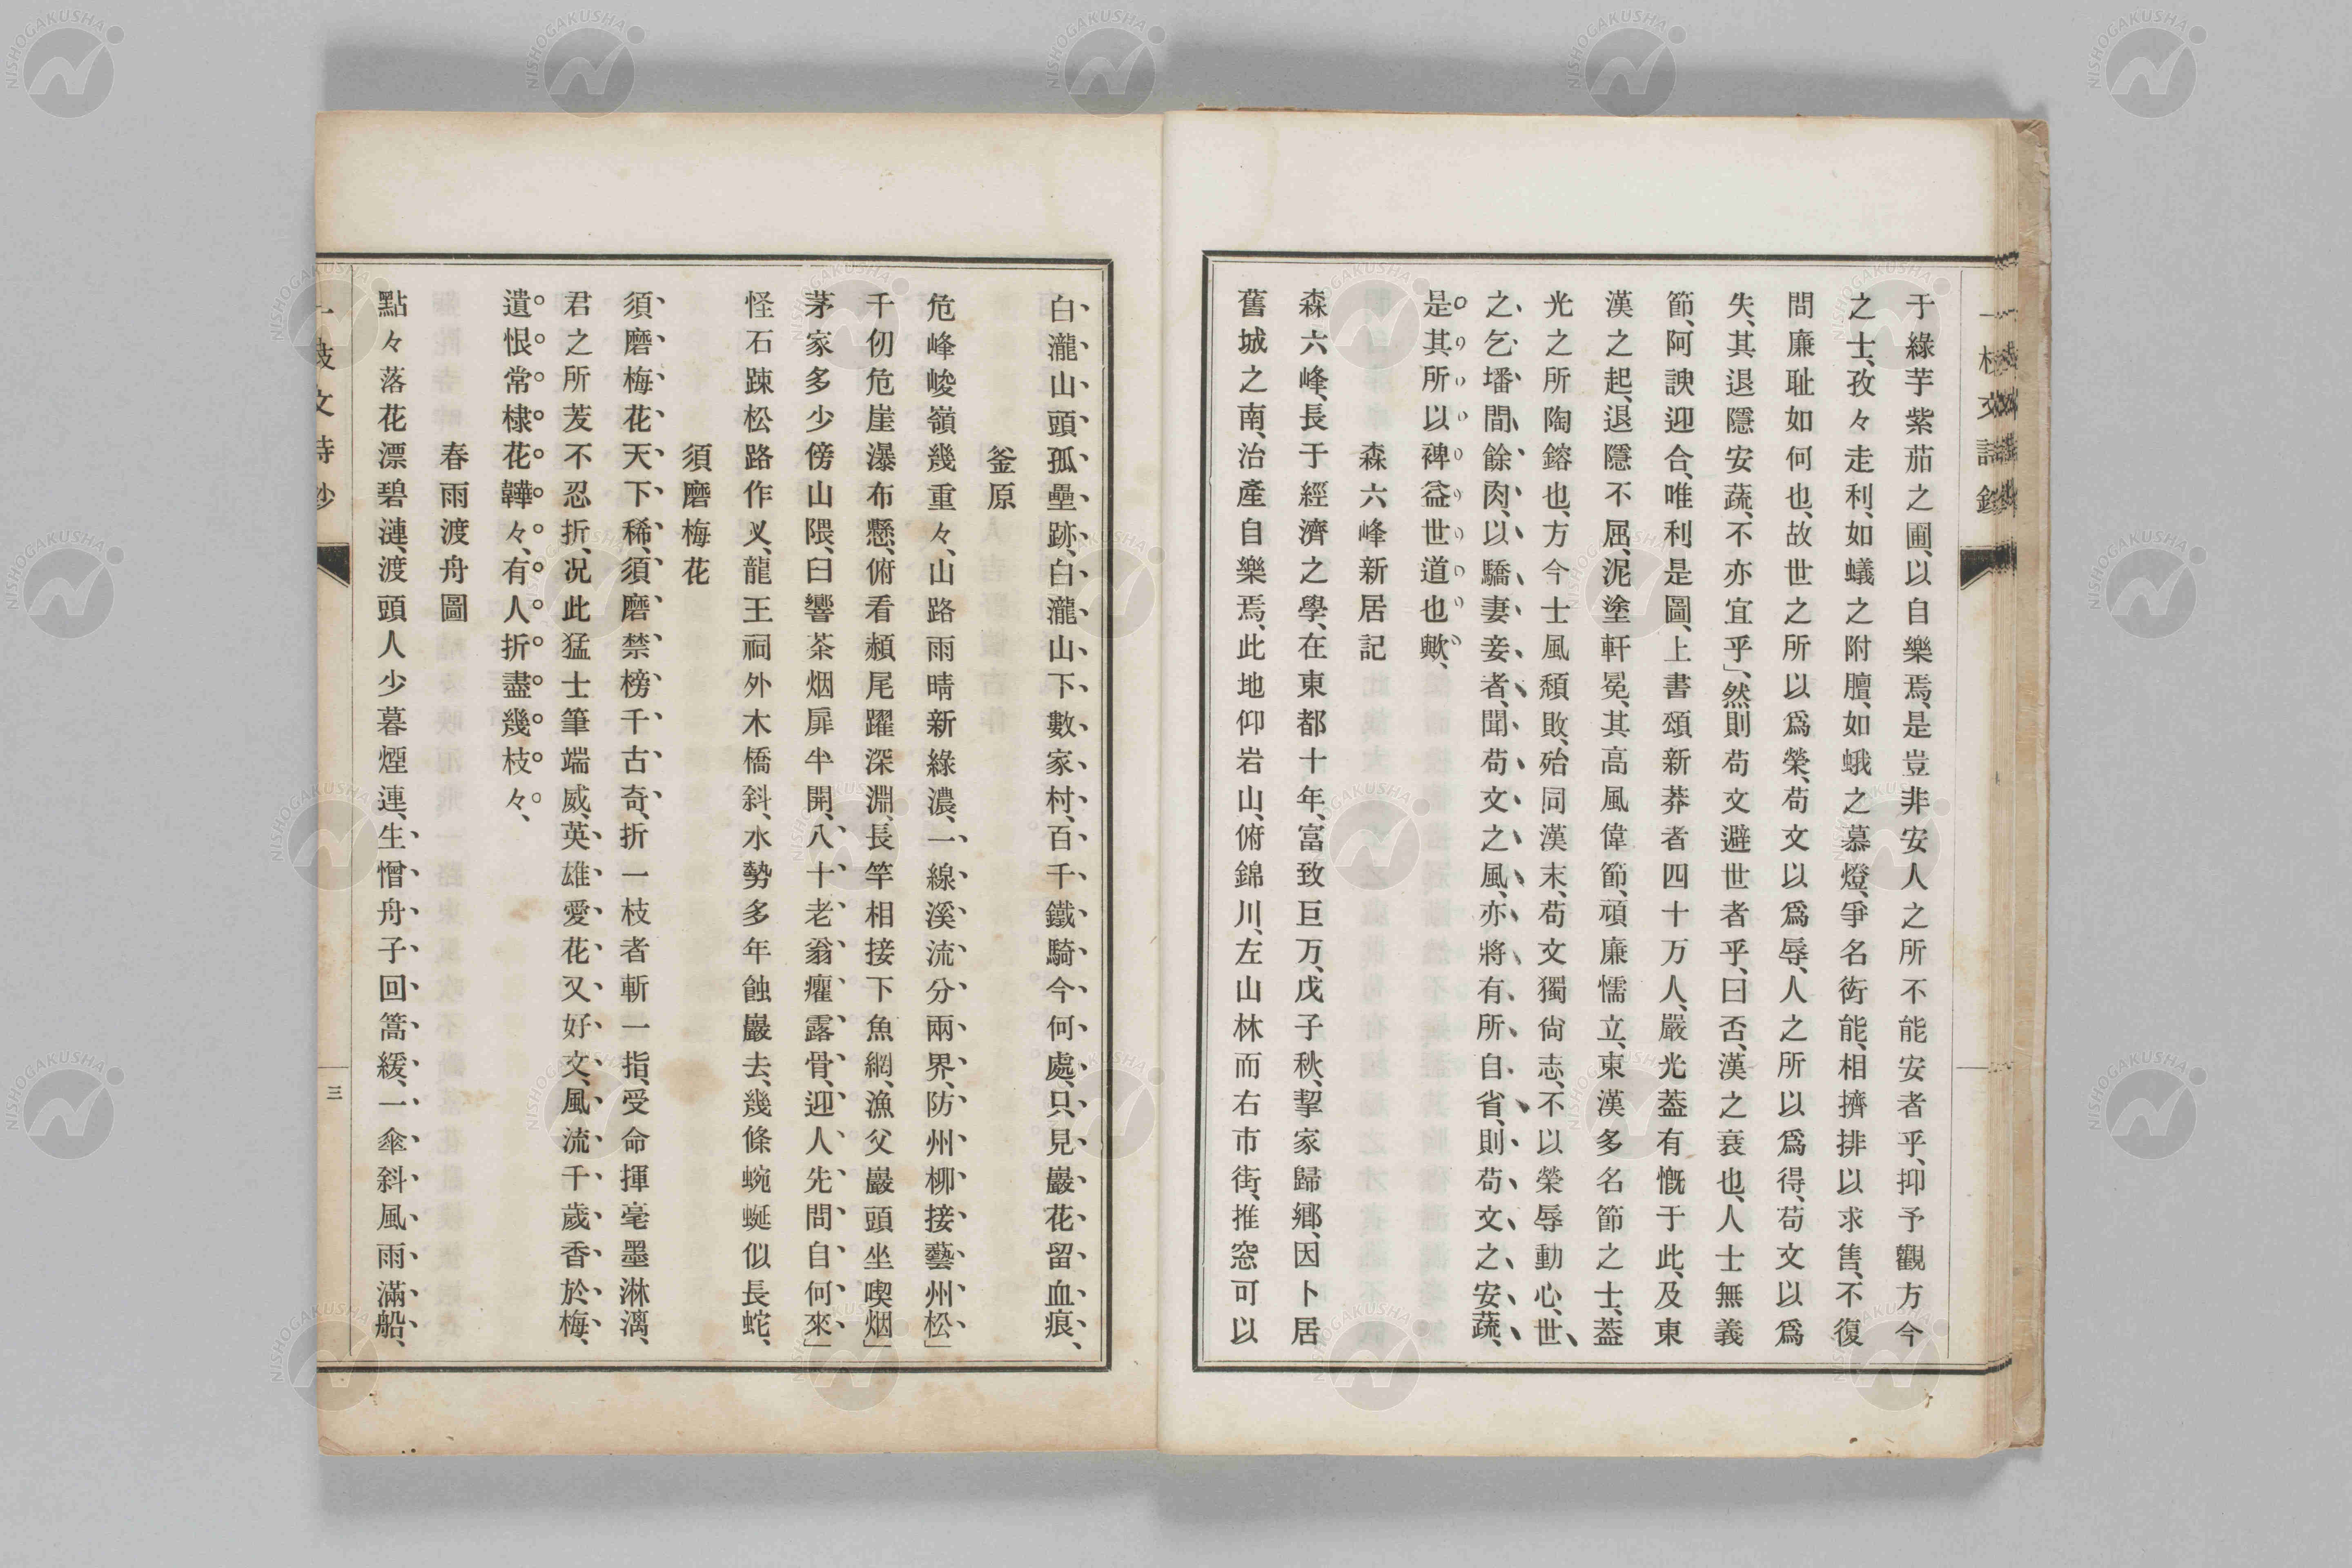 于綠芋紫茄之圃、以自樂焉、是豈非安人之所不能安者乎、抑予觀方今
之士、孜々走利、如蟻之附膻、如蛾之慕燈、爭名衒能、相擠排以求售、不復
問廉耻如何也、故世之所以爲榮、苟文以爲辱、人之所以爲得、苟文以爲
失、其退隱安蔬、不亦宜乎」、然則苟文避世者乎、曰否、漢之衰也、人士無義
節、阿諛迎合、唯利是圖、上書頌新莽者四十万人、嚴光蓋有慨于此、及東
漢之起、退隱不屈、泥塗軒冕、其高風偉節、頑廉懦立、東漢多名節之士、蓋
光之所陶鎔也、方今士風頽敗、殆同漢末、苟文獨尙志、不以榮辱動心、世、
之乞墦間餘肉、以驕妻妾者、聞苟文之風、亦將有所自省、則苟文之安蔬、
是其所以裨益世道也歟、
森六峰新居記
森六峰、長于經濟之學、在東都十年、富致巨万、戊子秋、挈家歸鄕、因卜居
舊城之南、治產自樂焉、此地仰岩山、俯錦川、左山林而右市街、推窓可以
白瀧山頭孤壘跡、白瀧山下數家村、百千鐵騎今何處、只見巖花留血痕、
釜原
危峰峻嶺幾重々、山路雨晴新綠濃、一線溪流分兩界、防州柳接藝州松」
千仞危崖瀑布懸、俯看頳尾躍深淵、長竿相接下魚網、漁父巖頭坐喫烟」
茅家多少傍山隈、臼響茶烟扉半開、八十老翁癯露骨、迎人先問自何來」
怪石踈松路作叉、龍王祠外木橋斜、水勢多年蝕巖去、幾條蜿蜒似長蛇、
須磨梅花
須磨梅花天下稀、須磨禁榜千古奇、折一枝者斬一指、受命揮毫墨淋漓、
君之所茇不忍折、况此猛士筆端威、英雄愛花又好文、風流千歲香於梅、
遺恨常棣花韡々、有人折盡幾枝々、
春雨渡舟圖
點々落花漂碧漣、渡頭人少暮煙連、生憎舟子回篙緩、一傘斜風雨滿船、
三
NISHOGAKUSHA